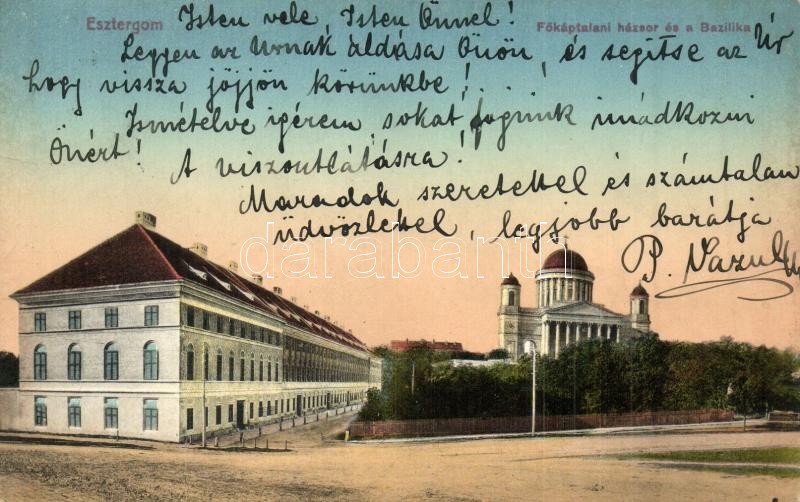 Esztergom
Főkáptalani házsor és a Bazilika
Isten vele, Isten Önnel!
Legyen az Urnak áldása Önön, és segítse az Úr
hogy vissza jöjjön körünkbe!
Ismételve igérem, sokat fogunk imádkozni
Önért! A viszontlátásra!
Maradok szeretettel és számtalan
üdvözlettel, legjobb barátja
P.
darabanth